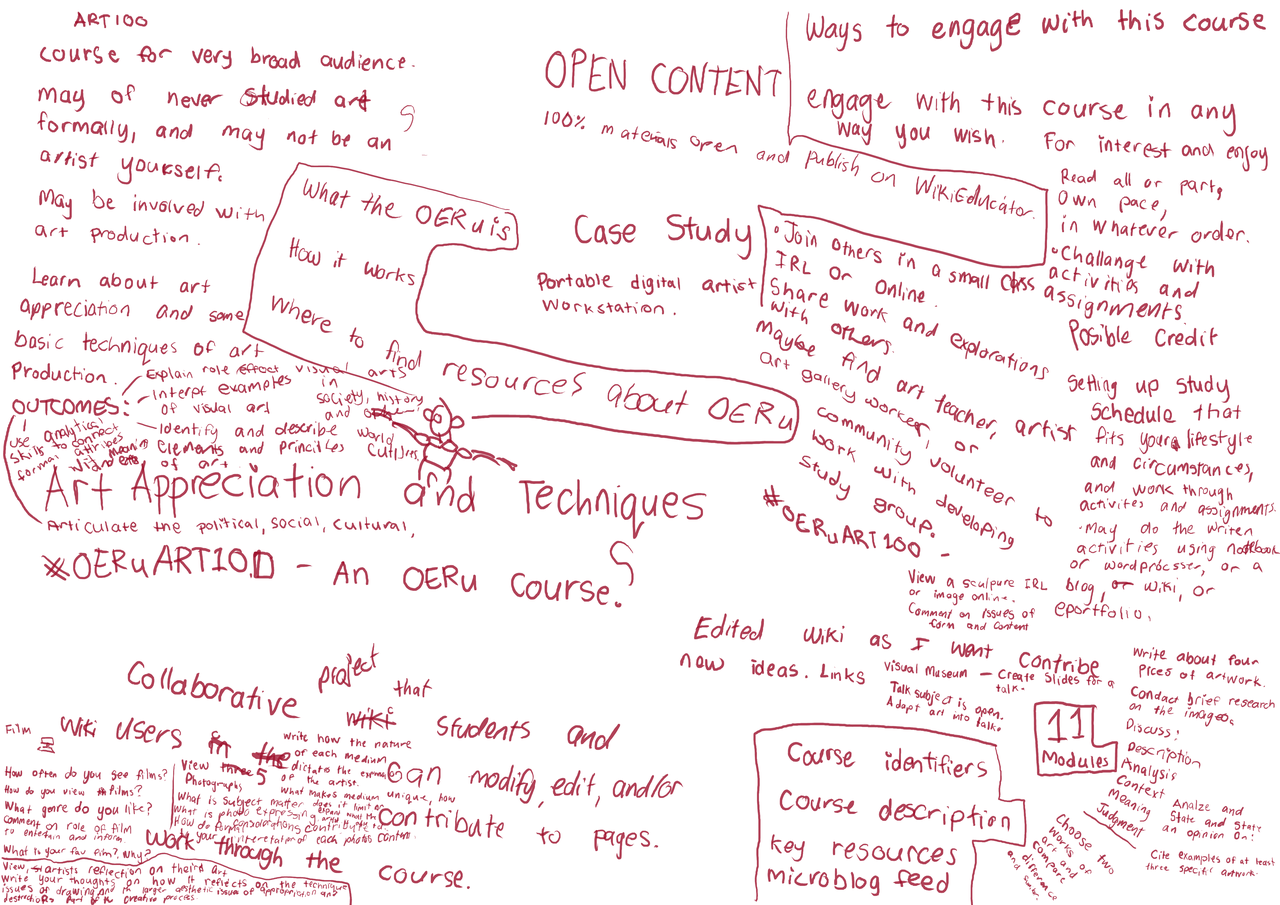 ART100
course for very broad audience.
may of never studied art
formally, and may not be an
artist yourself.
May be involved with
art production.
Learn about art
appreciation and some
basic techniques of art
Production.
OUTCOMES:
Explain role effect visual arts
in society, history
and
world
cultures
Interpt examples
of visual art
Identify and describe
Elements and princilles
of art
use analytical
skills to connect
formal attribes
with meaning
Art Appreciation and Techniques
Articulate the political, social, cultural,
#OERuART100 - An OERu Course.
What the OERu is
How it works
Where to find resources about OERu
OPEN CONTENT
100% materials open and publish on WikiEducator.
Case Study
Portable digital artist
Workstation.
Ways to engage with this course
engage with this course in any
way you wish.
For interest and enjoy
Read all or part,
Own pace,
in whatever order.
•Challange with
activities and
assignments
Posible Credit
•Join others in a small class
IRL or Online.
Share work and explorations
with others.
Maybe find art teacher, artist
art gallery worker, or
community volunteer to
work with developing
study group.
#OERuART100 -
Setting up study
schedule that
fits your lifestyle
and circumstances,
and work through
activites and assignments.
•May do the writen
activities using notebook
or wordprocsser, or a
blog, or wiki, or
eportfolio.
View a sculpure IRL
or image online.
Comment on issues of
form and content
Edited wiki as I went Contribe
new ideas. Links
Visual Museum - Create Slides for a
talk.
Talk subject is open.
Adapt art into talk.
Collaborative project that
wiki
Wiki users in the students and
can modify, edit, and/or
contribute to pages.
work through the
course.
Film
How often do you see films?
How do you view films?
What genre do you like?
Comment on role of film
to entertain and inform
What is your fav film? Why?
View three 5
Photographs
write how the nature
of each medium
dictates the
of the artist.
What makes medium unique, how
does it limit or
What is subject matter
What is photo expressing
How do formal considerations contribute to
your interetation of each photos content
View, artists reflection on theird art
Write your thoughts on how it reflects on the technique
issues of drawing and in larger aesthetic issue of appropriation and
destruction part of the creative process.
Course identifiers
Course description
key resources
microblog feed
11
Modules
Write about four
pices of artwork.
Conduct brief research
on the images.
Discuss:
Description
Analysis
Context
Meaning
Judgment
Analze and
State and State
an opinion on:
Cite examples of at least
three specific artwork.
Choose two
works of
art and
compare
difference
and